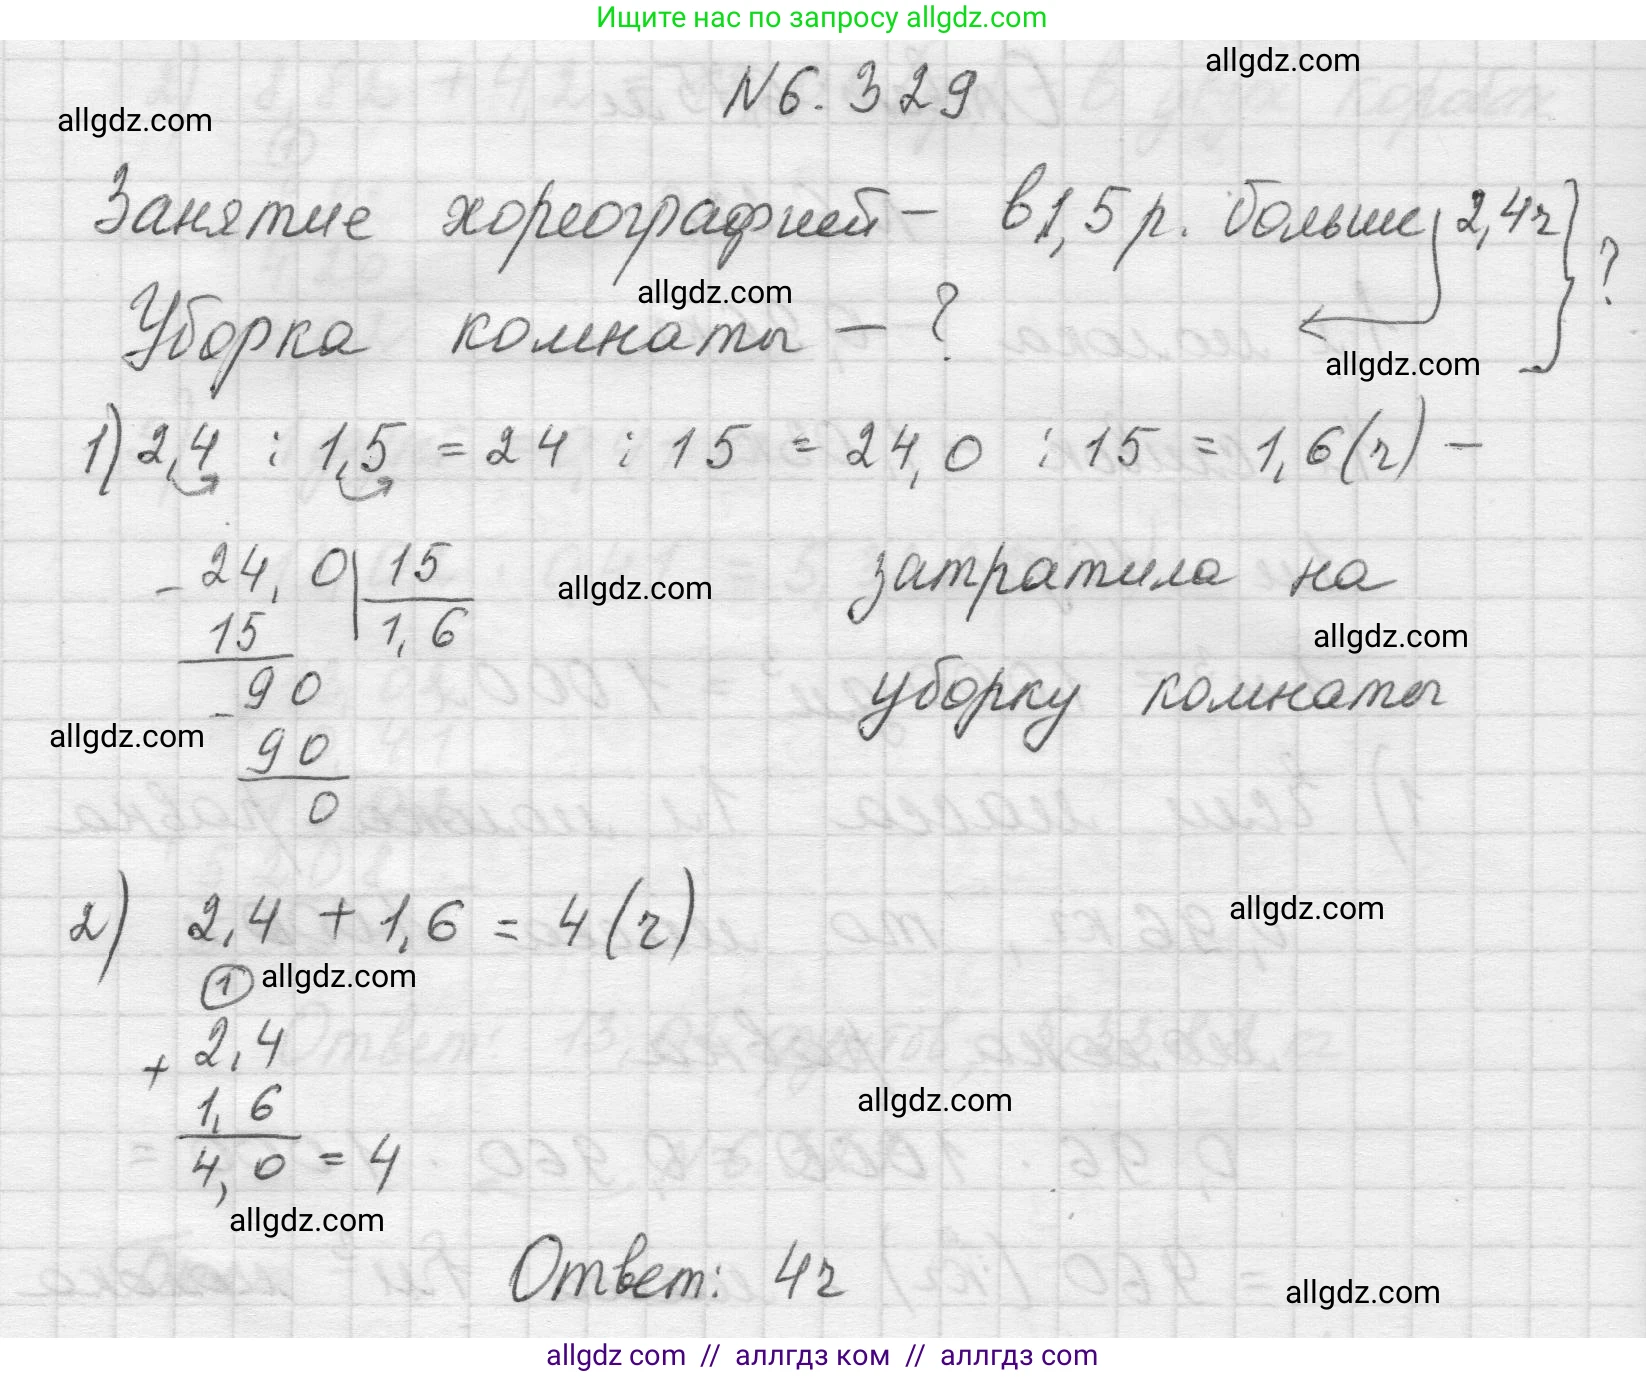 Ищите нас по запросу allgdz.com
allgdz.com
N6.329
allgdz.com
Занятие хореографией – в 1,5 р. больше 2,4ч ?
allgdz.com
Уборка комнаты – ?
allgdz.com
1) 2,4 : 1,5 = 24 : 15 = 24,0 : 15 = 1,6(ч) –
- 24,0 15
allgdz.com
затратила на
15 1,6
allgdz.com
- 90
уборку комнаты
allgdz.com
90
0
2) 2,4 + 1,6 = 4(ч)
allgdz.com
1 allgdz.com
+ 2,4
1,6
allgdz.com
4,0 = 4
allgdz.com
Ответ: 4ч
allgdz.com
allgdz com // аллгдз ком // аллгдз com